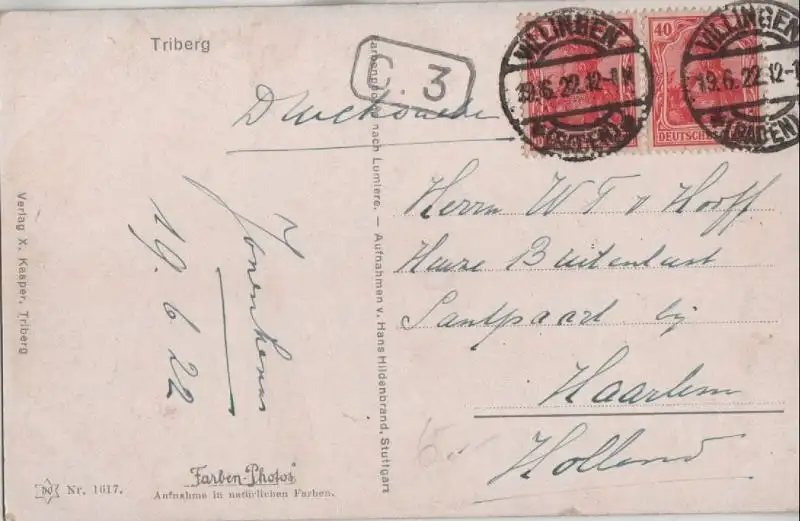 Triberg
C. 3
Drucksache
VILLINGEN
19.6.22.12-1N
(BADEN)
VILLINGEN
19.6.22.12-1
(BADEN)
40
DEUTSCHES
Farbenphotos nach Lumiere. — Aufnahmen v. Hans Hildenbrand, Stuttgart
Herrn W T v Hooff
Huize Buitenlust
Santpoort bij
Haarlem
Holland
19.6.22
Verlag X. Kesper, Triberg
6.-
Farben-Photos
Nr. 1617.
Aufnahme in natürlichen Farben.